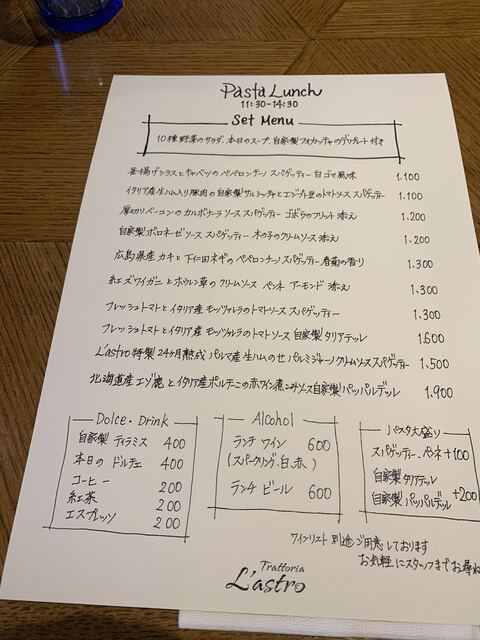 Pasta Lunch
11:30-14:30
Set Menu
10種野菜のサラダ、本日のスープ、自家製フォカッチャのデリプレート付き
釜揚げシラスとキャベツのペペロンチーノ スパゲッティー 白ゴマ風味 1.100
イタリア産生ハム入り豚肉の自家製サルシッチャとエジプト豆のトマトソース スパゲッティー 1.100
厚切りベーコンのカルボナーラソース スパゲッティー ゴボウのフリット添え 1.200
自家製ボロネーゼソース スパゲッティー 木の子のクリームソース添え 1.200
広島県産カキと下仁田ネギのペペロンチーノ スパゲッティー 春菊の香り 1.300
紅ズワイガニとホウレン草のクリームソース ペンネ アーモンド添え 1.300
フレッシュトマトとイタリア産モッツァレラのトマトソース スパゲッティー 1.300
フレッシュトマトとイタリア産モッツァレラのトマトソース 自家製タリアテッレ 1.600
L'astro特製 24ヶ月熟成 パルマ産生ハムのせ パルミジャーノクリームソース スパゲッティー 1.500
北海道産エゾ鹿とイタリア産ポルチーニの赤ワイン煮込みソース 自家製パッパルデッレ 1.900
Dolce・Drink
自家製 ティラミス 400
本日の ドルチェ 400
コーヒー 200
紅茶 200
エスプレッソ 200
Alcohol
ランチ ワイン 600
(スパークリング、白、赤)
ランチ ビール 600
パスタ大盛り
スパゲッティー、ペンネ +100
自家製 タリアテッレ
自家製 パッパルデッレ +200
ワインリスト別途ご用意しております
お気軽にスタッフまでお尋ね
Trattoria
L'astro